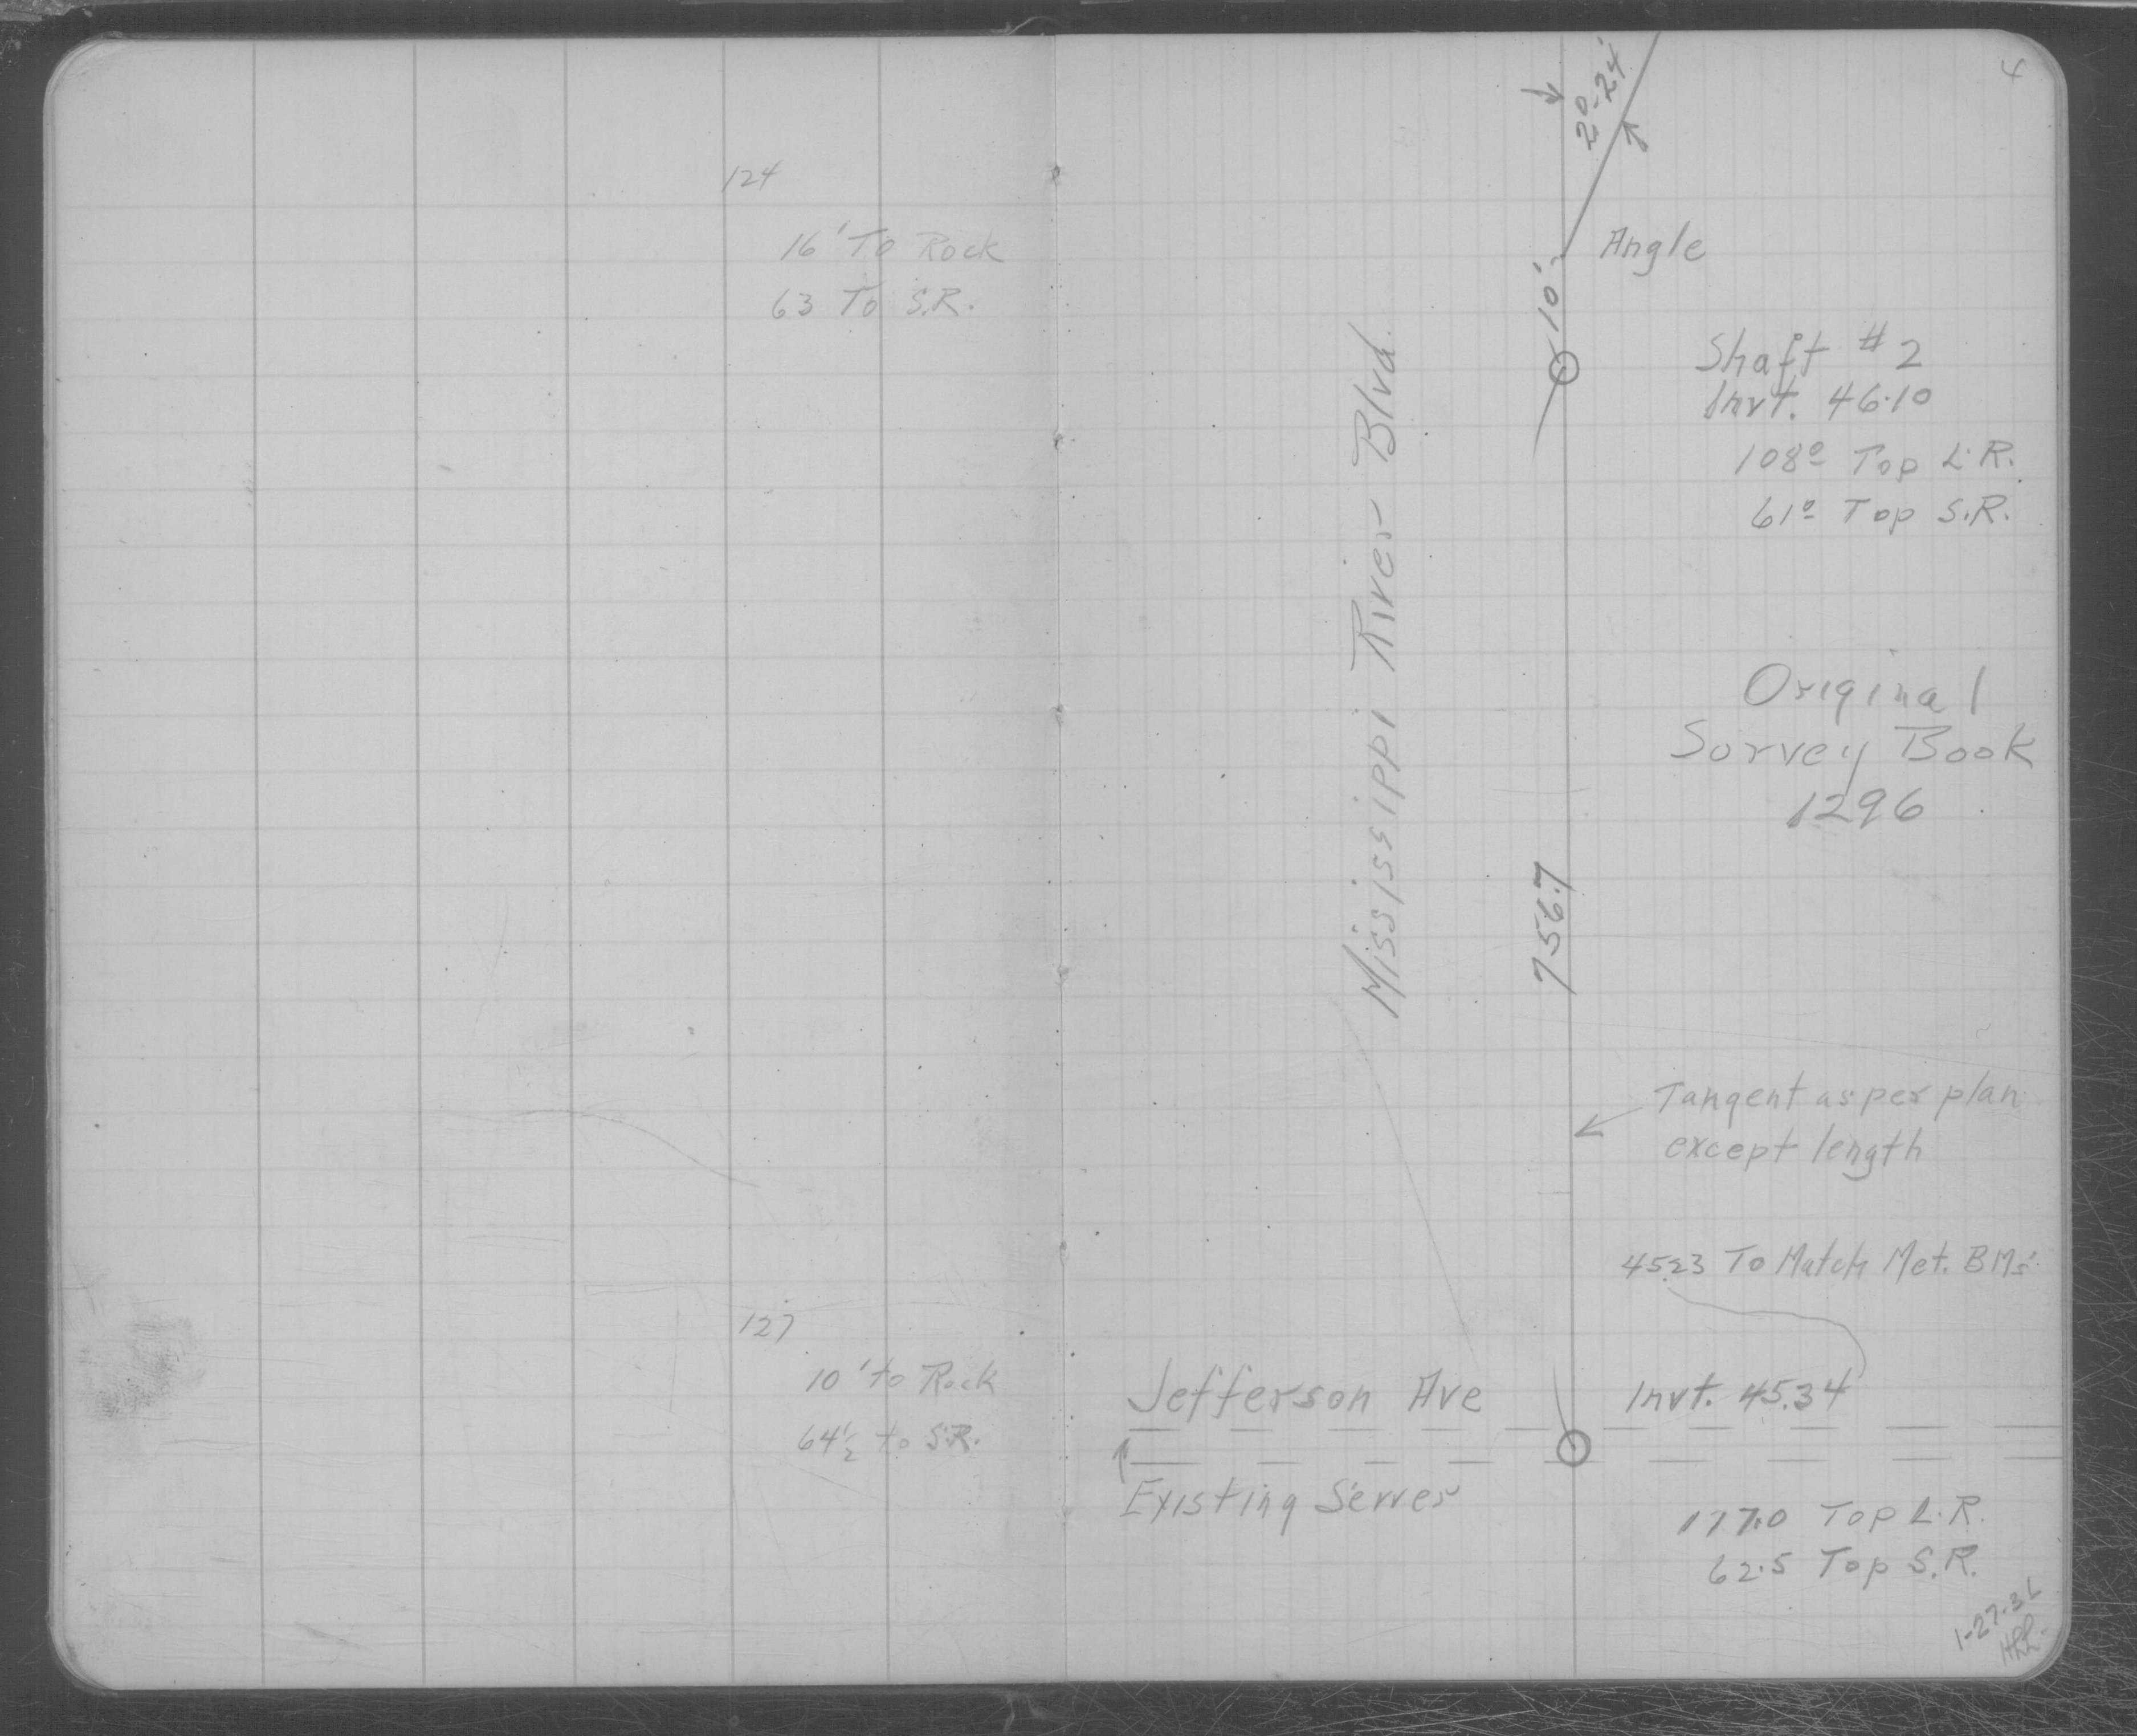 124
16' To Rock
63 To S.R.
127
10' to Rock
64½ to S.R.
4
2°-24'
Angle
10'
Shaft #2
Invt. 46.10
108º Top L.R.
61º Top S.R.
Mississippi River Blvd.
Original
Survey Book
1296
756.7
Tangent as per plan
except length
45.23 To Match Met. BMs'
Jefferson Ave
Invt. 45.34
Existing Sewer
117.0 Top L.R.
62.5 Top S.R.
1-27-36